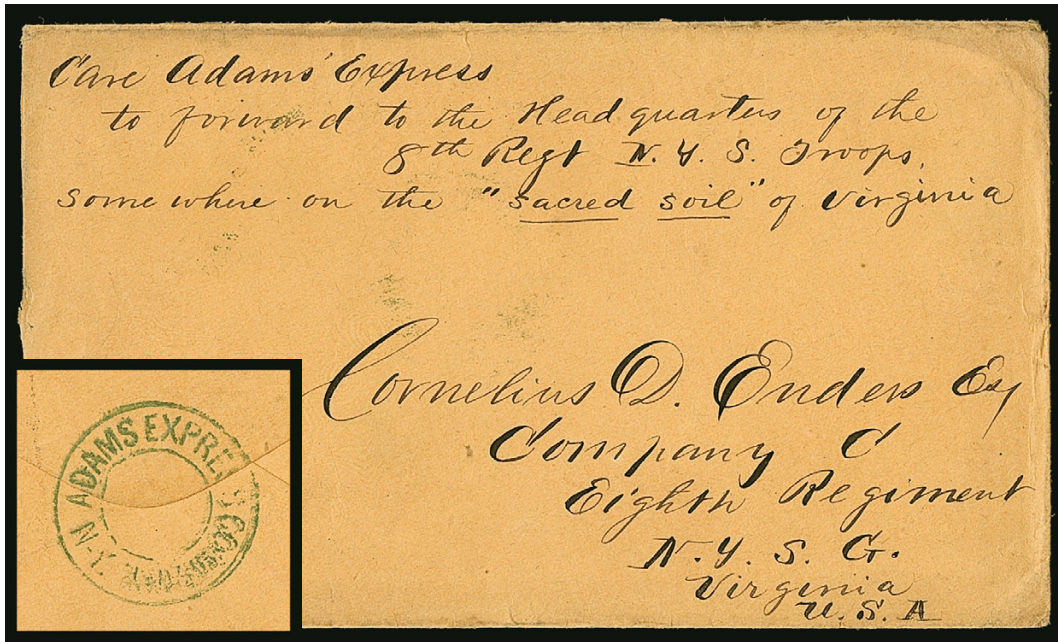 Care Adams' Express
to forward to the Head quarters of the
8th Regt N. Y. S. Troops,
somewhere on the "sacred soil" of Virginia
Cornelius D. Enders Esq
Company C
Eighth Regiment
N. Y. S. G.
Virginia
U. S. A
ADAMS EXPRE
N-Y.